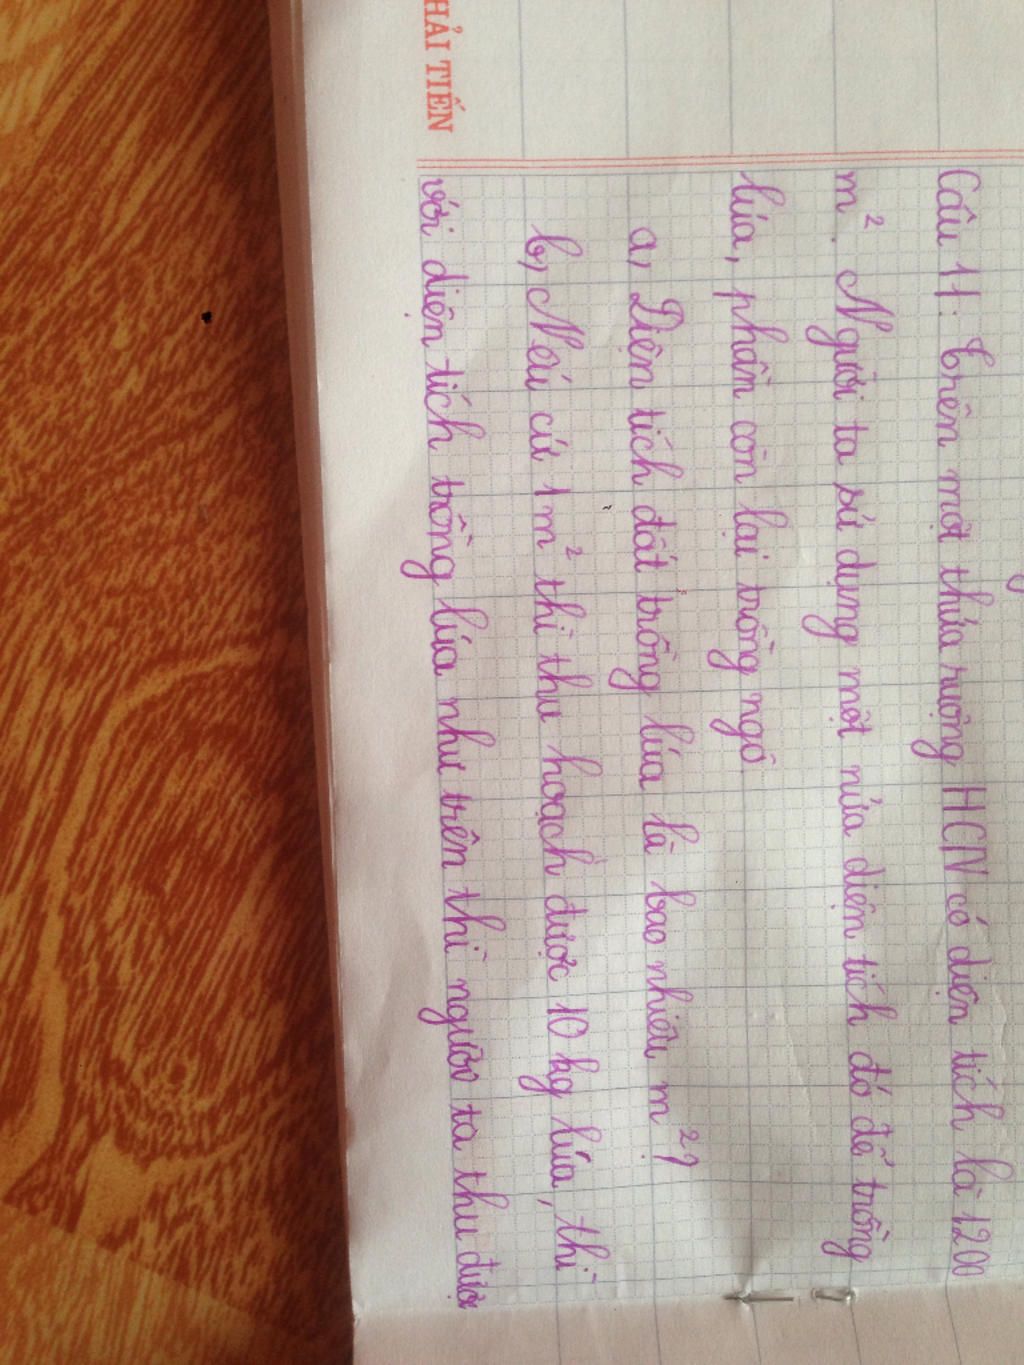 HẢI TIẾN
Câu 11: Trên một thửa ruộng HCN có diện tích là 1200
m². Người ta sử dụng một nửa diện tích đó để trồng
lúa, phần còn lại trồng ngô
a, Diện tích đất trồng lúa là bao nhiêu m²?
b, Nếu cứ 1m² thì thu hoạch được 10 kg lúa, thì
với diện tích trồng lúa như trên thì người ta thu được